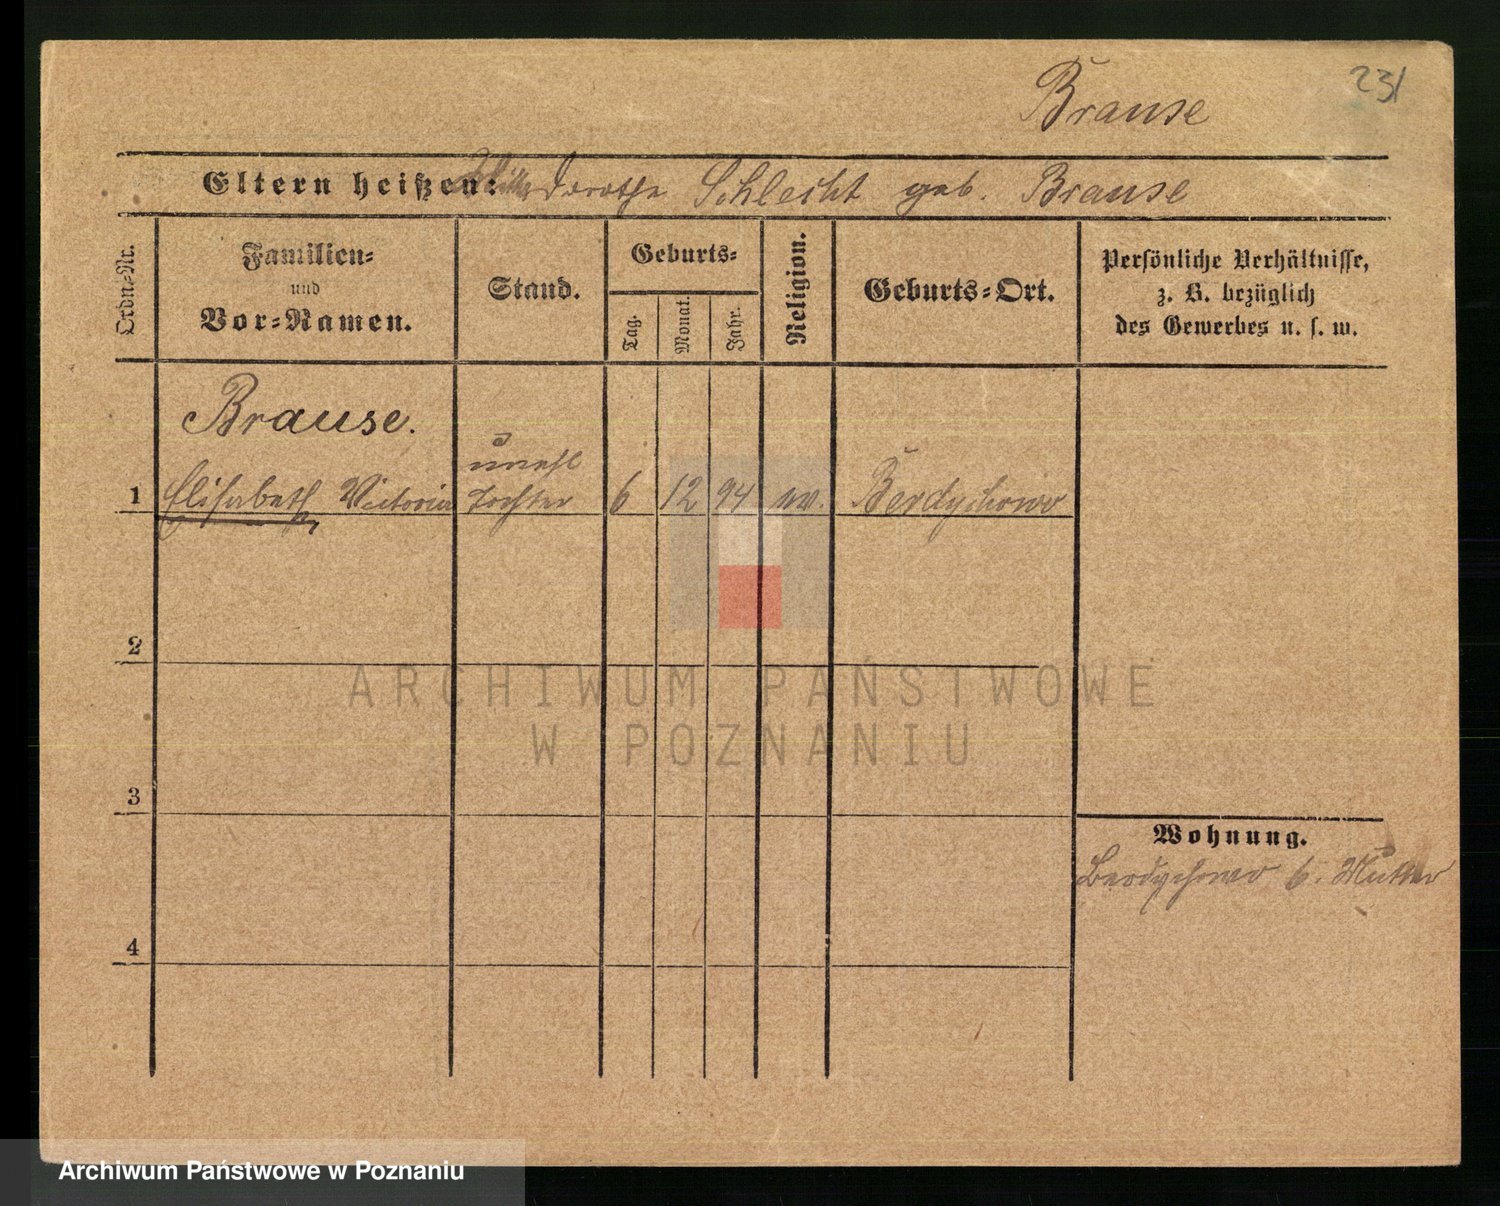 231
Brause
Eltern heißen: Dorothe Schlecht geb. Brause
Ordn.-Nr.
Familien-
und
Vor-Namen.
Stand.
Geburts-
Tag.
Monat.
Jahr.
Religion.
Geburts-Ort.
Persönliche Verhältnisse,
z. B. bezüglich
des Gewerbes u. s. w.
Brause.
unehl
1 Elisabeth Victoria Tochter 6 12 94 Berdychowo
2
3
4
Wohnung.
Berdychowo b. Mutter
ARCHIWUM PAŃSTWOWE
W POZNANIU
Archiwum Państwowe w Poznaniu